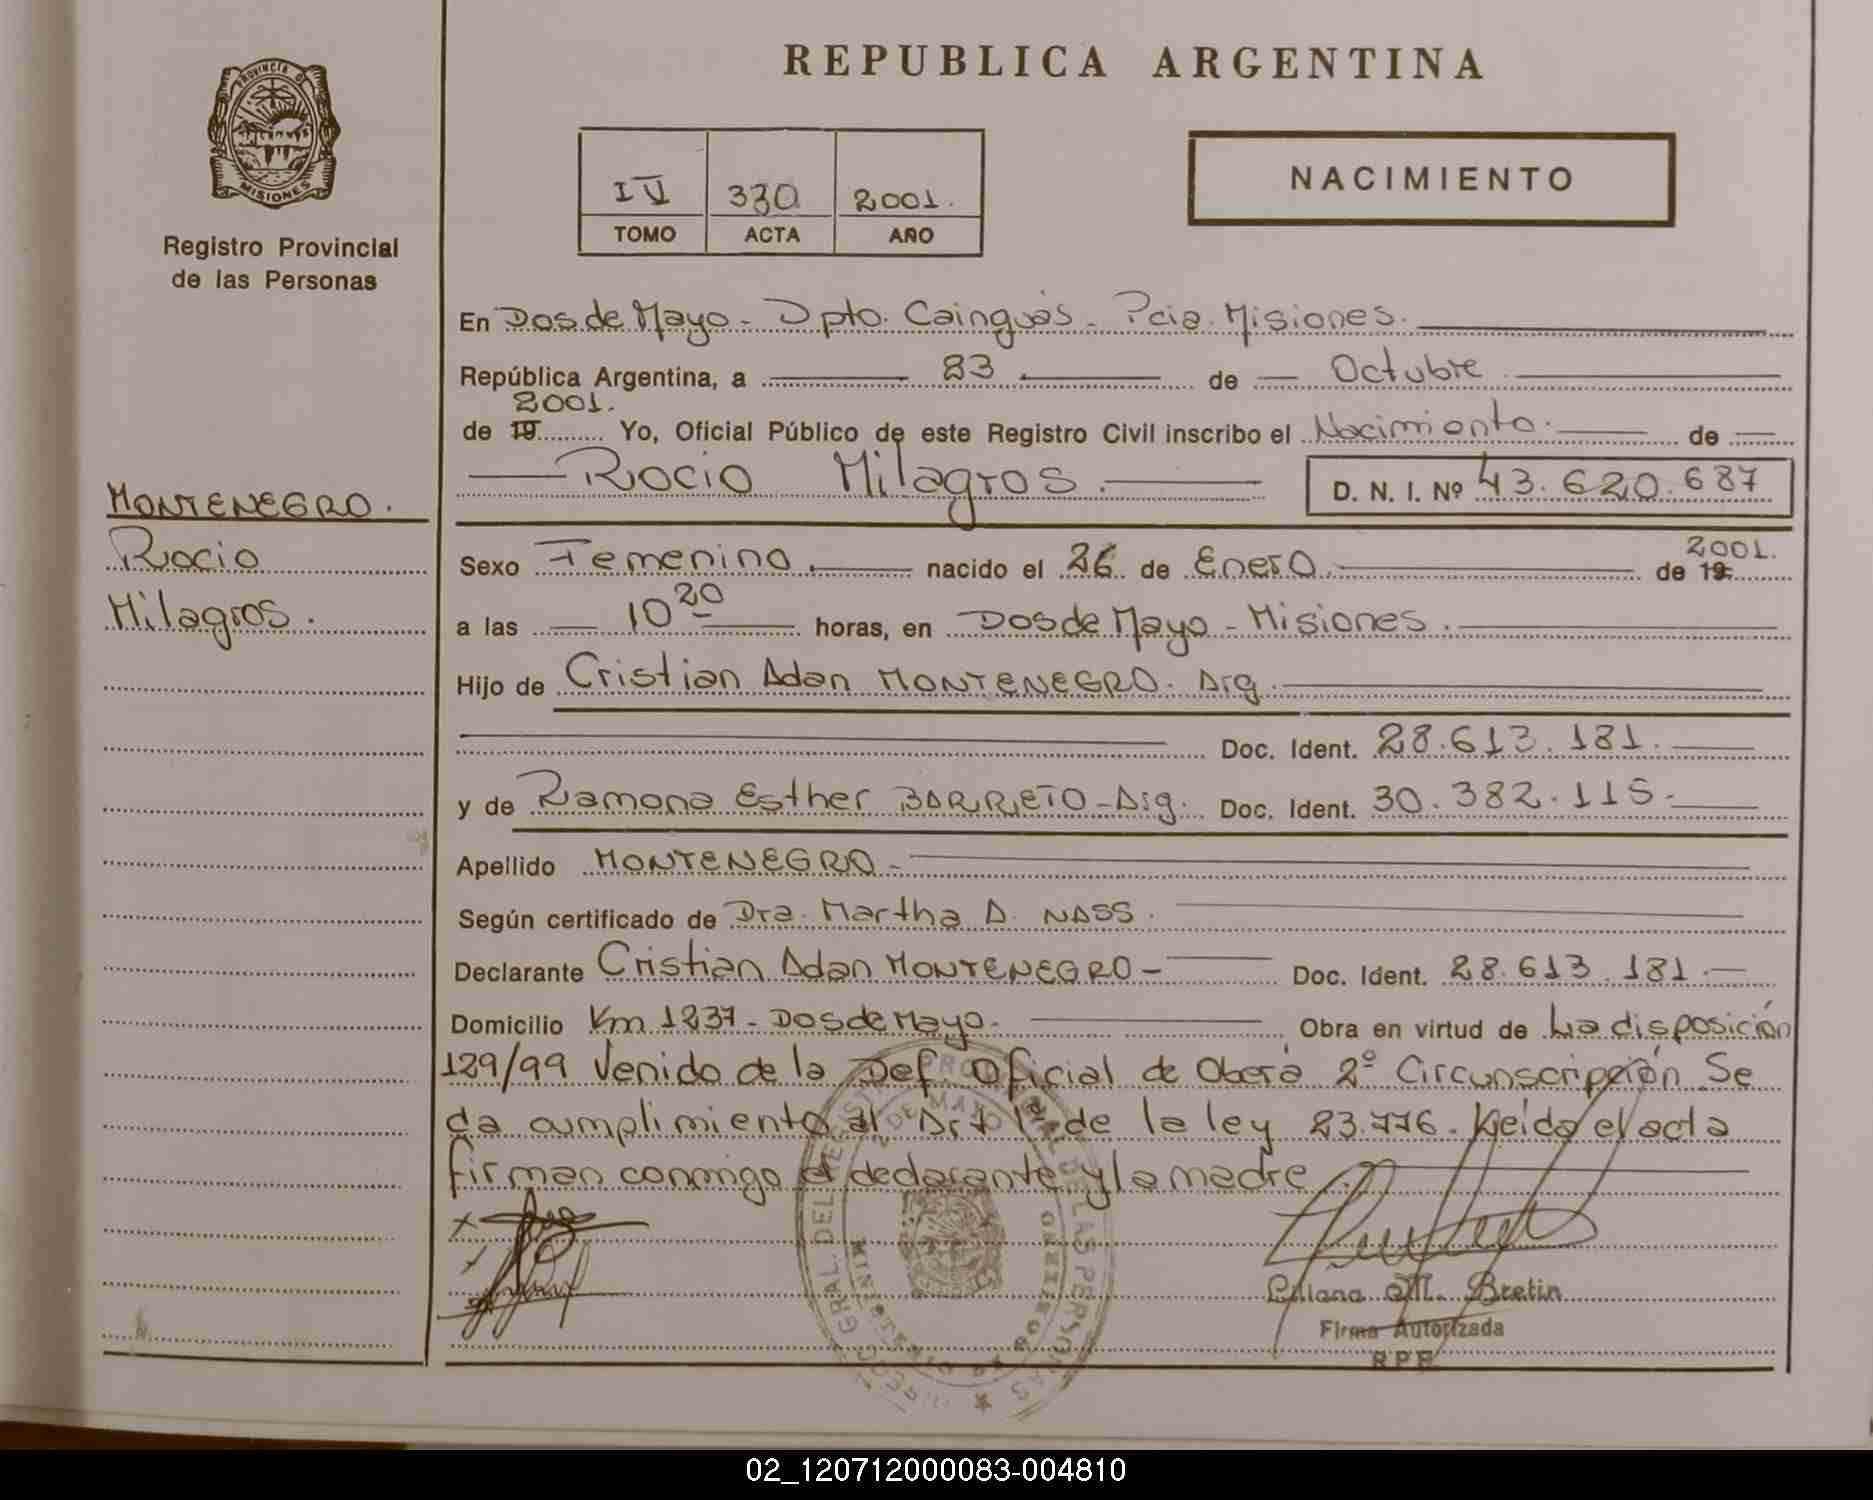 REPUBLICA ARGENTINA
PROVINCIA DE
MISIONES
Registro Provincial
de las Personas
IV 330 2001.
TOMO ACTA AÑO
NACIMIENTO
En Dos de Mayo - Dpto. Cainguás - Pcia. Misiones.
República Argentina, a 23 de Octubre
2001.
de 19 Yo, Oficial Público de este Registro Civil inscribo el Nacimiento de
Rocio Milagros. D. N. I. Nº 43.620.687
MONTENEGRO.
Rocio
Milagros.
2001.
Sexo Femenino. nacido el 26 de Enero de 19
a las 10 20 horas, en Dos de Mayo - Misiones.
Hijo de Cristian Adan MONTENEGRO. Arg.
Doc. Ident. 28.613.181.
y de Ramona Esther BARRETO - Arg. Doc. Ident. 30.382.115.
Apellido MONTENEGRO -
Según certificado de Dra. Martha A. NASS.
Declarante Cristian Adan MONTENEGRO - Doc. Ident. 28.613.181.
Domicilio Km 1237 - Dos de Mayo. Obra en virtud de La disposición
129/99 Venido de la Def. Oficial de Oberá 2º Circunscripción Se
da cumplimiento al Art 1º de la ley 23.776. Leida el acta
firman conmigo el declarante y la madre.
Liliana M. Bretin
Firma Autorizada
R P P
02_120712000083-004810